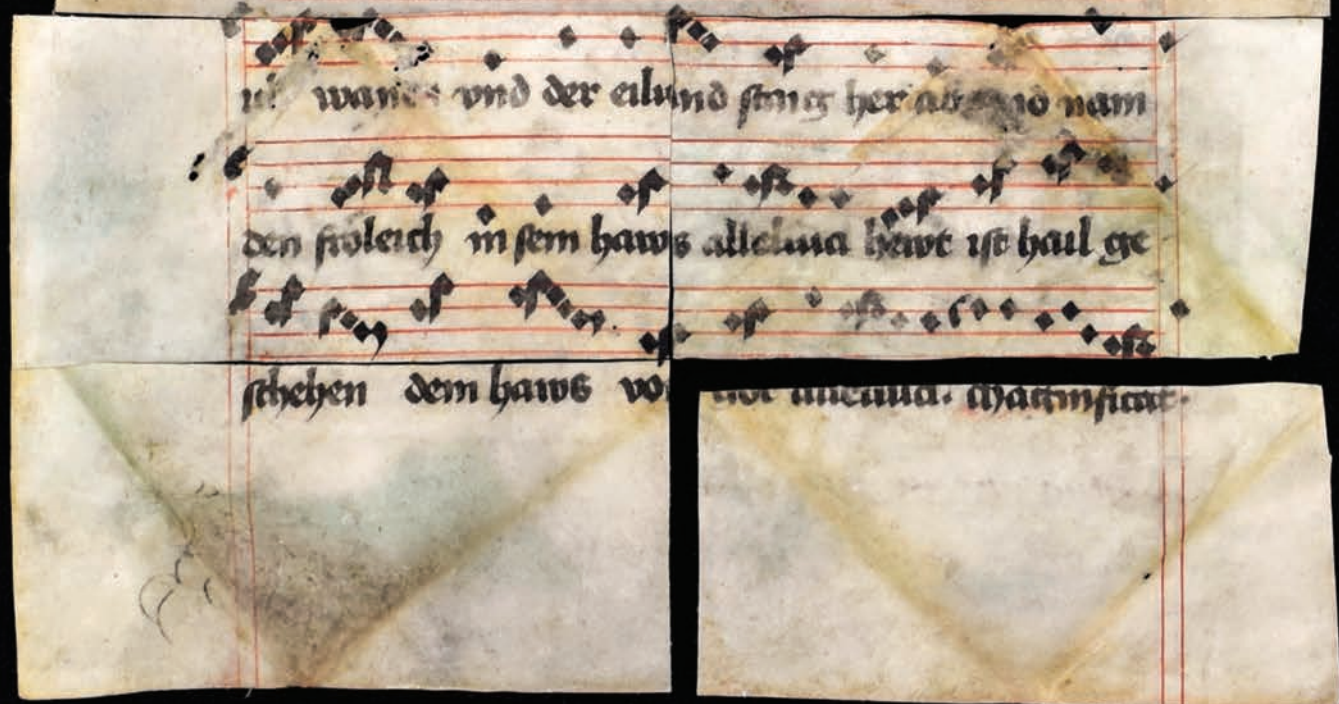 vnd der eilund staig her ab vnd nam
den froleich in sein haws alleluia hewt ist hail ge
schehen dem haws von got alleluia. Magnificat.